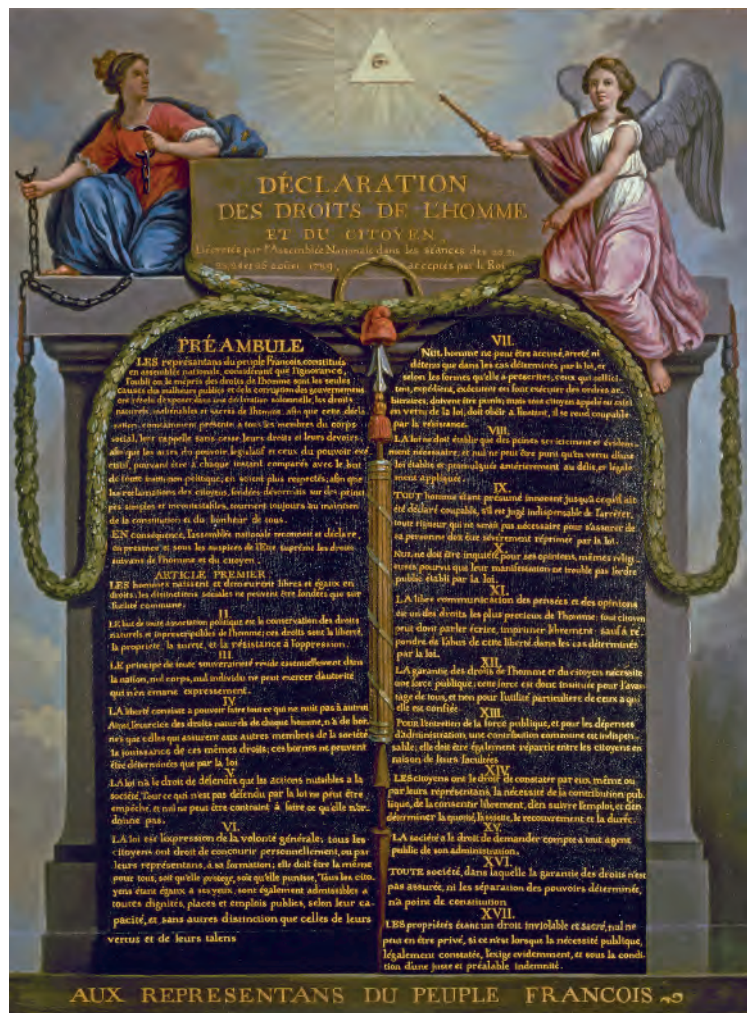 DÉCLARATION
DES DROITS DE L'HOMME
ET DU CITOYEN,
Décretés par l'Assemblée Nationale dans les séances des 20, 21,
août 1789, acceptés par le Roi
PRÉAMBULE
LES représentans du peuple François, constitués
en assemblée nationale, considérant que l'ignorance,
l'oubli ou le mépris des droits de l'homme sont les seules
causes des malheurs publics et de la corruption des gouvernemens
ont résolu d'exposer dans une déclaration solemnelle, les droits
naturels, inaliénables et sacrés de l'homme; afin que cette décla
ration, constamment présente a tous les membres du corps
social, leur rappelle sans cesse leurs droits et leurs devoirs;
afin que les actes du pouvoir législatif et ceux du pouvoir exé
cutif, pouvant être à chaque instant comparés avec le but
de toute institution politique, en soient plus respectés; afin que
les reclamations des citoyens, fondées désormais sur des princi
pes simples et incontestables, tournent toujours au maintien
de la constitution et du bonheur de tous.
EN conséquence, l'assemblée nationale reconnoit et déclare
en presence et sous les auspices de l'Etre suprême les droits
suivans de l'homme et du citoyen.
ARTICLE PREMIER.
LES hommes naissent et demeurent libres et égaux en
droits; les distinctions sociales ne peuvent être fondées que sur
l'utilité commune.
II.
LE but de toute association politique est la conservation des droits
naturels et imprescriptibles de l'homme; ces droits sont la liberté,
la propriété, la sureté, et la résistance à l'oppression.
III.
LE principe de toute souveraineté réside essentiellement dans
la nation, nul corps, nul individu ne peut exercer d'autorité
qui n'en émane expressement.
IV.
LA liberté consiste a pouvoir faire tout ce qui ne nuit pas à autrui
Ainsi, l'exercice des droits naturels de chaque homme, n'a de bor-
nes que celles qui assurent aux autres membres de la société
la jouissance de ces mêmes droits; ces bornes ne peuvent
être déterminées que par la loi
V.
LA loi n'a le droit de défendre que les actions nuisibles a la
société. Tout ce qui n'est pas défendu par la loi ne peut être
empêché, et nul ne peut être contraint à faire ce qu'elle n'or-
donne pas.
VI.
LA loi est l'expression de la volonté générale; tous les
citoyens ont droit de concourir personnellement, ou par
leurs représentans, à sa formation; elle doit être la même
pour tous, soit qu'elle protege, soit qu'elle punisse, Tous les cito
yens étant égaux a ses yeux, sont également admissibles a
toutes dignités, places et emplois publics, selon leur ca-
pacité, et sans autres distinction que celles de leurs
vertus et de leurs talens
VII.
NUL homme ne peut être accusé, arreté ni
détenu que dans les cas déterminés par la loi, et
selon les formes qu'elle a prescrites, ceux qui sollici-
tent, expédient, exécutent ou font exécuter des ordres ar-
bitraires, doivent être punis; mais tout citoyen appelé ou saisi
en vertu de la loi, doit obéir a l'instant, il se rend coupable
par la résistance.
VIII.
LA loi ne doit établir que des peines strictement et évidem-
ment nécessaire, et nul ne peut être puni qu'en vertu d'une
loi établie et promulguée antérierement au délit, et légale
ment appliquée.
IX.
TOUT homme étant présumé innocent jusqu'a ce qu'il ait
été déclaré coupable, s'il est jugé indispensable de l'arrêter,
toute rigueur qui ne serait pas nécessaire pour s'assurer de
sa personne doit être sévèrement réprimée par la loi.
X.
NUL ne doit être inquiété pour ses opinions, mêmes religi
euses pourvu que leur manifestation ne trouble pas l'ordre
public établi par la loi.
XI.
LA libre communication des pensées et des opinions
est un des droits les plus precieux de l'homme: tout citoyen
peut donc parler écrire, imprimer librement: sauf à ré
pondre de l'abus de cette liberté dans les cas déterminés
par la loi.
XII.
LA garantie des droits de l'homme et du citoyen nécessite
une force publique; cette force est donc instituée pour l'avan
tage de tous, et non pour l'utilité particuliere de ceux a qui
elle est confiée.
XIII.
Pour l'entretien de la force publique, et pour les dépenses
d'administration, une contribution commune est indispen-
sable; elle doit être également répartie entre les citoyens en
raison de leurs facultées
XIV.
LES citoyens ont le droit de constater par eux même ou
par leurs représentans, la nécessité de la contribution pub-
lique, de la consentir librement, d'en suivre l'emploi, et d'en
déterminer la quotité, l'assiette, le recouvrement et la durée.
XV.
LA société a le droit de demander compte a tout agent
public de son administration.
XVI.
TOUTE société, dans laquelle la garantie des droits n'est
pas assurée, ni les séparation des pouvoirs déterminée,
n'a point de constitution
XVII.
LES propriétés étant un droit inviolable et sacré, nul ne
peut en être privé, si ce n'est lorsque la nécessité publique,
légalement constatée, l'exige evidemment, et sous la condi-
tion d'une juste et préalable indemnité.
AUX REPRESENTANS DU PEUPLE FRANCOIS